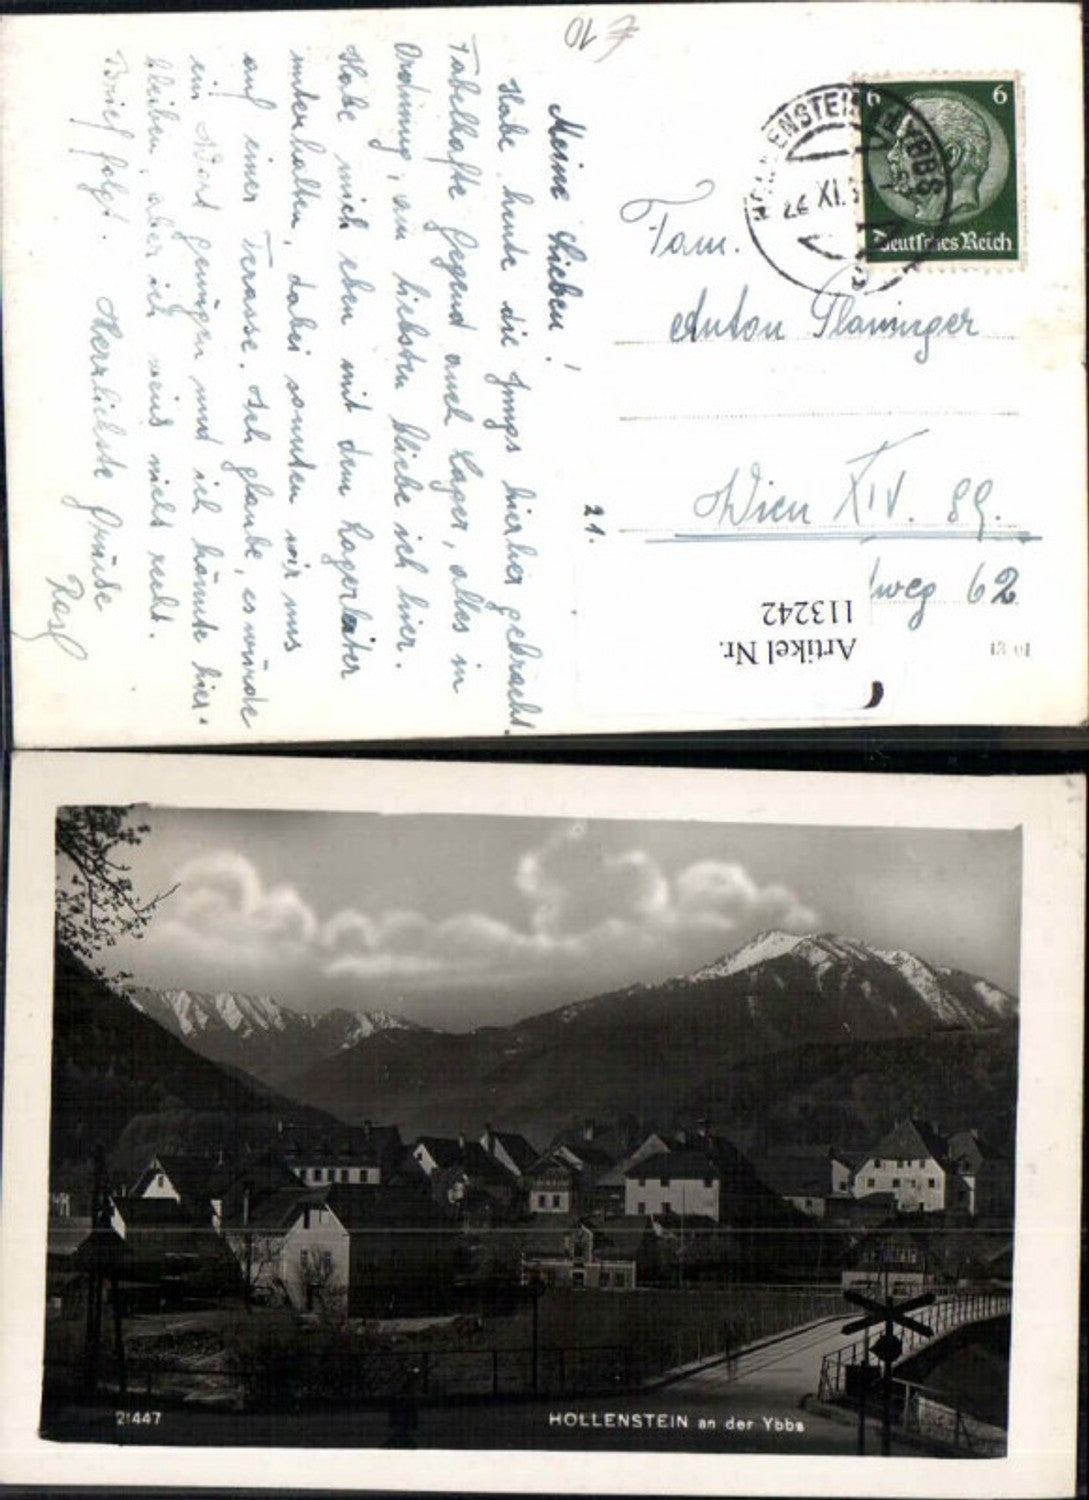 10
Meine Lieben!
Habe heute die Jungs hierher gebracht.
Fabelhafte Gegend auch Lager, alles in
Ordnung, am liebsten bliebe ich hier.
Habe mich eben mit dem Lagerleiter
unterhalten, dabei sonnten wir uns
auf einer Terrasse. Ich glaube, es würde
ein Wort genügen und ich könnte hier-
bleiben, aber ich weiß nicht recht.
Brief folgt. Herrlichste Grüße
6 6
Deutsches Reich
HOLLENSTEIN YBBS
XI.
Fam.
Anton Planinger
Wien XIV. 89.
weg 62
21.
Artikel Nr.
113242
21447
HOLLENSTEIN an der Ybbs